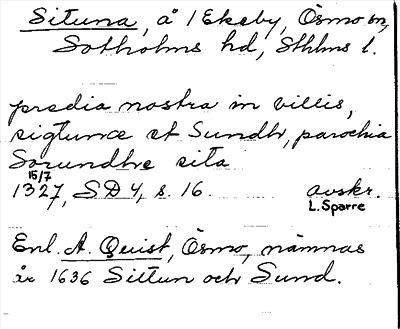 Situna, å / Ekeby, Ösmo sn,
Sotholms hd, Sthlms l.
predia nostra in villis,
sigtunæ et Sundby, parochia
Sorundhæ sita
15/7
1327, SD 4, s. 16. avskr.
L. Sparre
Enl. A. Quist, Ösmo, nämnas
år 1636 Sittun och Sund.